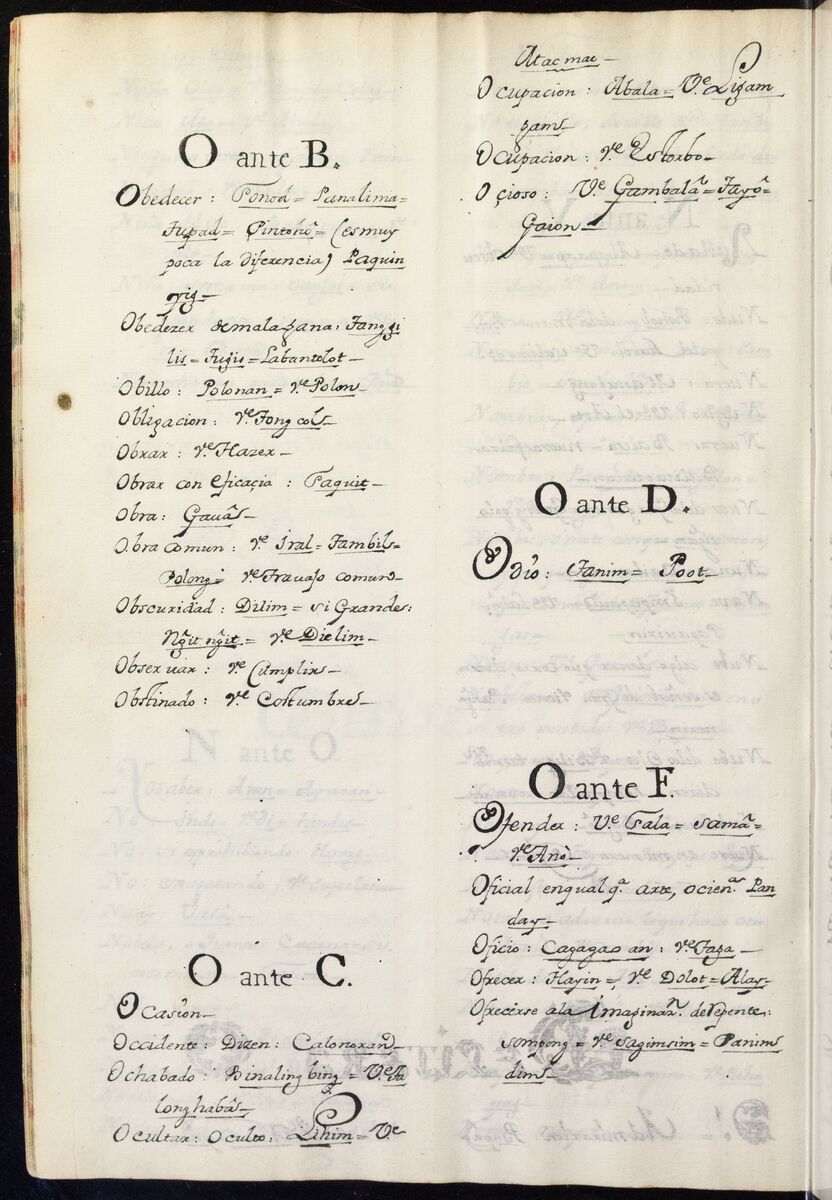 O ante B.
Obedecer: Tonod= Panalima=
Tupad= Çintohõ= (es muy
poca la diferencia) Paquin
yig_
Obedezer de mala gana: Tanggi
lis= Tugis= Labantolot_
Obillo: Polonan= Vᵉ Polon_
Obligacion: Vᵉ Tongcol_
Obrar: Vᵉ Hazer_
Obrar con eficaçia: Taquit_
Obra: Gavâ_
Obra comun: Vᵉ Iral= Tambil=
Polong= Vᵉ Travajo comun_
Obscuridad: Dilim= si Grande:
Ng̃it ng̃it= Vᵉ Dielim_
Observar: Vᵉ Cumplir_
Obstinado: Vᵉ Costumbre_
O ante C.
Ocasion_
Occidente: Dizen: Calonoran_
Ochabado: Binalingbing= Vᵉ Ta
longhabâ_
Ocultar: Oculto: Lihim= Vᵉ
Atacmac_
Ocupacion: Abala= Vᵉ Ligam
gam_
Ocupacion: Vᵉ Estorbo_
Oçioso: Vᵉ Gambalã= Tayõ=
Gaion_
O ante D.
Odio: Tanim= Poot_
O ante F.
Ofender: Vᵉ Tala= Samã=
Vᵉ Anò_
Oficial en qualqᵃ arte, o cienᵃ Pan
day_
Oficio: Cagagaoan: Vᵉ Taga_
Ofrecer: Hayin= Vᵉ Dolot= Alay_
Ofrecerse a la Imaginaⁿ. de repente:
Sompong= Vᵉ Sagimsim= Panim
dim_